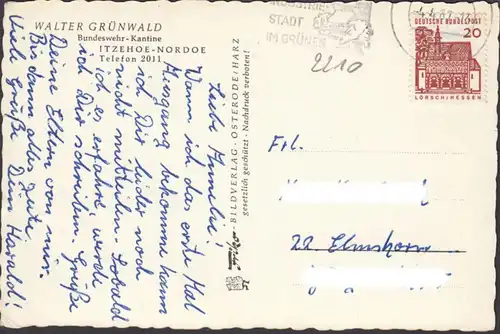 WALTER GRÜNWALD
Bundeswehr-Kantine
ITZEHOE-NORDOE
Telefon 2011
Liebe Amelie!
Wann ich das erste Mal
Ausgang bekomme kann
ich Dir leider noch
nicht mitteilen. Sobald
ich es erfahre werde
ich Dir schreiben. Grüße
Deine Eltern von mir.
Bis dann alles Gute
Viele Grüße Dein Harald!
BILDVERLAG · OSTERODE/HARZ
gesetzlich geschützt · Nachdruck verboten!
INDUSTRIE-
STADT
IM GRÜNEN
2210
DEUTSCHE BUNDESPOST
20
LORSCH/HESSEN
Frl.
22 Elmshorn